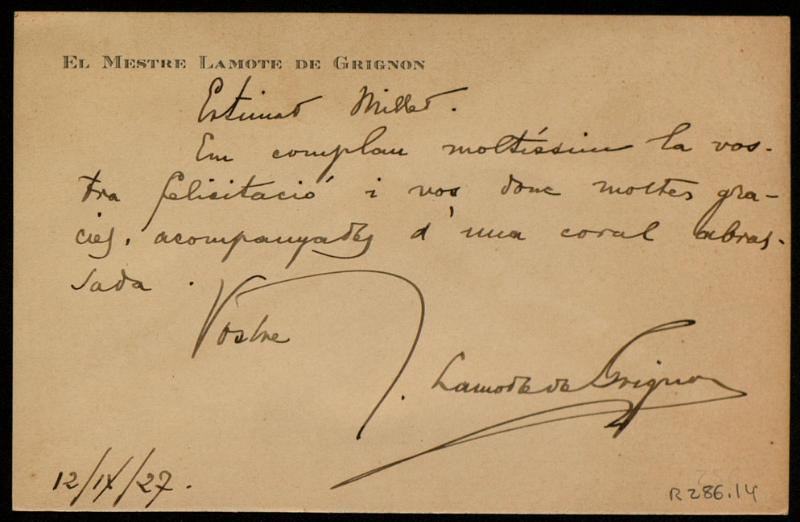 El Mestre Lamote de Grignon
Estimat Millet.
Em complau moltíssim la vos-
tra felicitació i vos donc moltes gra-
cies, acompanyades d'una coral abras-
sada.
Vostre
J. Lamote de Grignon
12/IX/27.
R 286.14